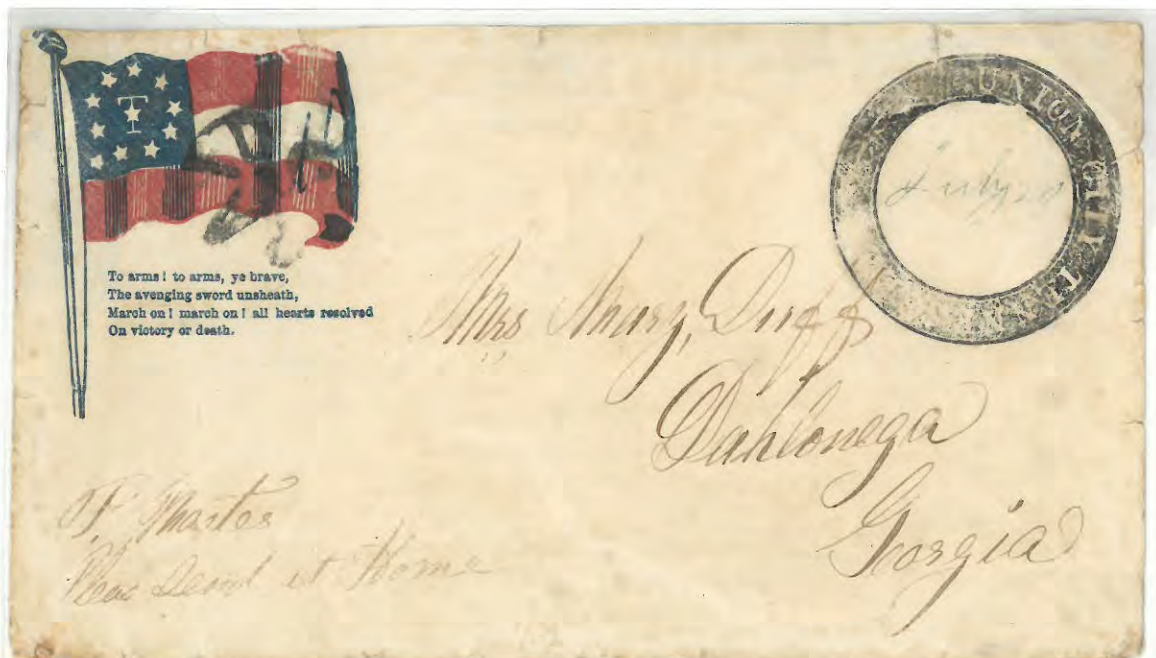 T
To arms! to arms, ye brave,
The avenging sword unsheath,
March on! march on! all hearts resolved
On victory or death.
UNION CITY TENN
July 20
Mrs Mary, Duff
Dahlonega
Georgia
P. Master
Pleas Send it Home